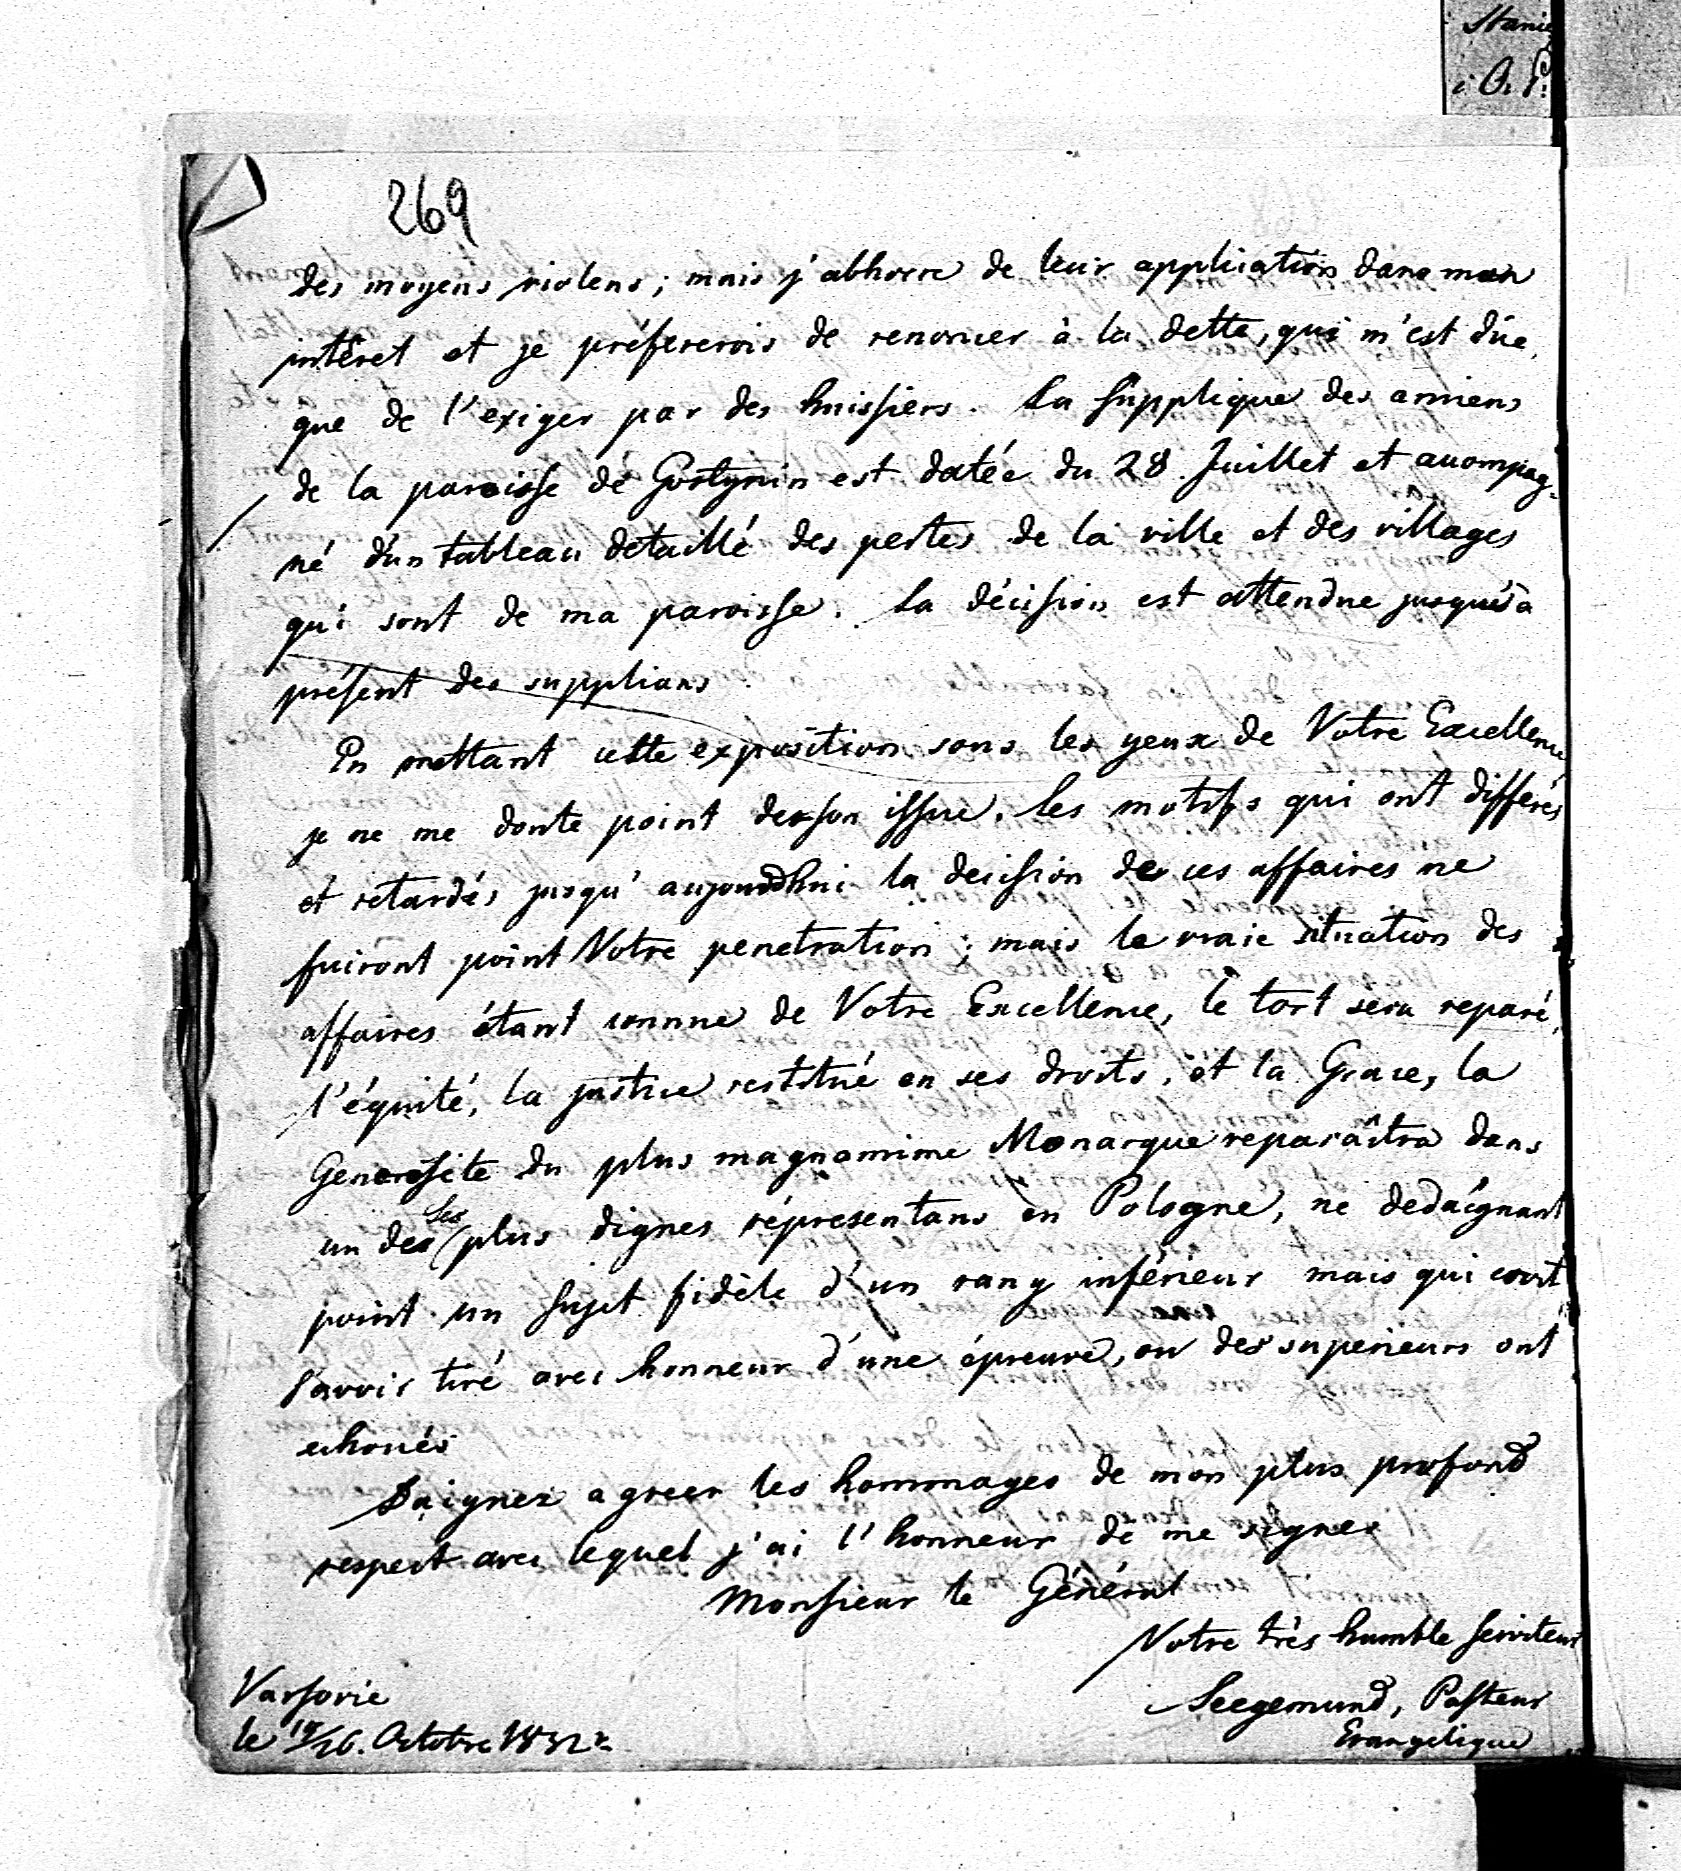 Stani
i O. P.
269
des moyens violens; mais j'abhorre de leur application dans mon
intêret et je préfererois de renoncer à la dette, qui m'est dûe,
que de l'exiger par des huissiers. La supplique des anciens
de la paroisse de Gostynin est datée du 28 Juillet et accompag-
né d'un tableau detaillé des pertes de la ville et des villages
qui sont de ma paroisse. La décision est attendue jusqu'à
présent des supplians.
En mettant cette exposition sous les yeux de Votre Excellence,
je ne me doute point de son issue. Les motifs qui ont différés
et retardés jusqu'aujourdhui la decision de ces affaires ne
fuiront point Votre penetration; mais la vraie situation des
affaires étant connue de Votre Excellence, le tort sera reparé,
l'équité, la justice restitué en ses droits, et la Grace, la
Generosité du plus magnanime Monarque reparaîtra dans
un des Ses plus dignes répresentans en Pologne, ne dedaignant
point un sujet fidèle d'un rang inférieur mais qui croit
s'avoir tiré avec honneur d'une épreuve, ou des superieurs ont
echoués
Daignez agreer les hommages de mon plus profond
respect avec lequel j'ai l'honneur de me signer
Monsieur le Général
Votre très humble serviteur
Varsovie
Seegemund, Pasteur
le 14/26. Octobre 1832
Evangelique